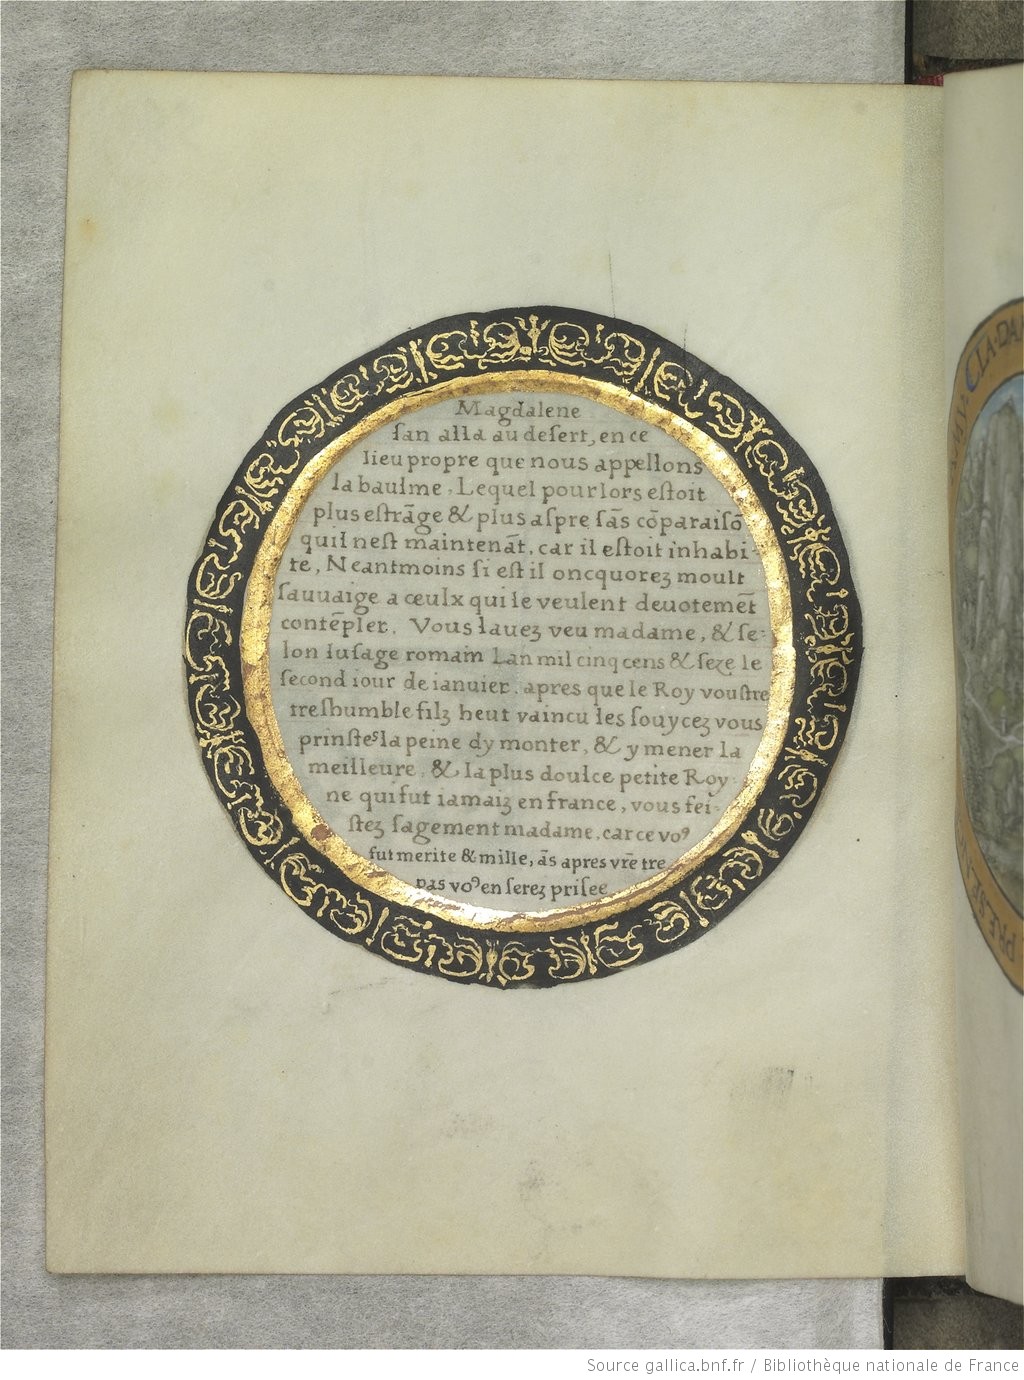 Magdalene
san alla au desert, en ce
lieu propre que nous appellons
la baulme. Lequel pour lors estoit
plus estrãge & plus aspre sãs cõparaisõ
quil nest maintenãt, car il estoit inhabi-
te, Neantmoins si est il oncquorez moult
sauuaige a ceulx qui le veulent deuotemẽt
contẽpler. Vous lauez veu madame, & se-
lon lusage romain Lan mil cinq cens & seze le
second iour de ianuier. apres que le Roy voustre
treshumble filz heut vaincu les souycez vous
prinstes la peine dy monter, & y mener la
meilleure, & la plus doulce petite Roy-
ne qui fut iamaiz en france, vous fei-
stez sagement madame, car ce voꝰ
fut merite & mille, ãs apres vr̃e tre
pas voꝰ en serez prisee
CLA·DA
Source gallica.bnf.fr / Bibliothèque nationale de France